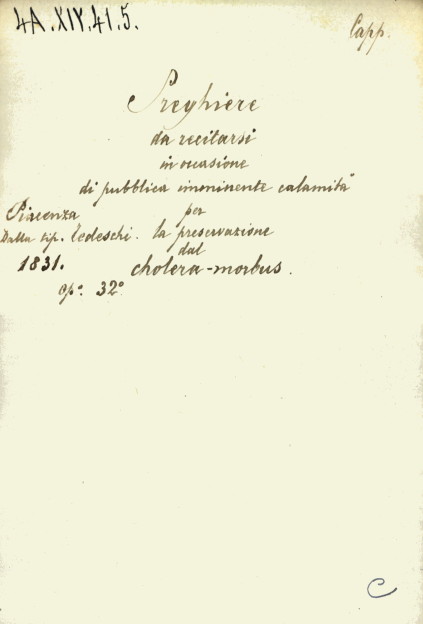 4A.XIV.41.5.
Capp.
Preghiere
da recitarsi
in occasione
di pubblica imminente calamità
per
la preservazione
dal
cholera-morbus.
Piacenza
Dalla tip. Tedeschi.
1831.
32°
C